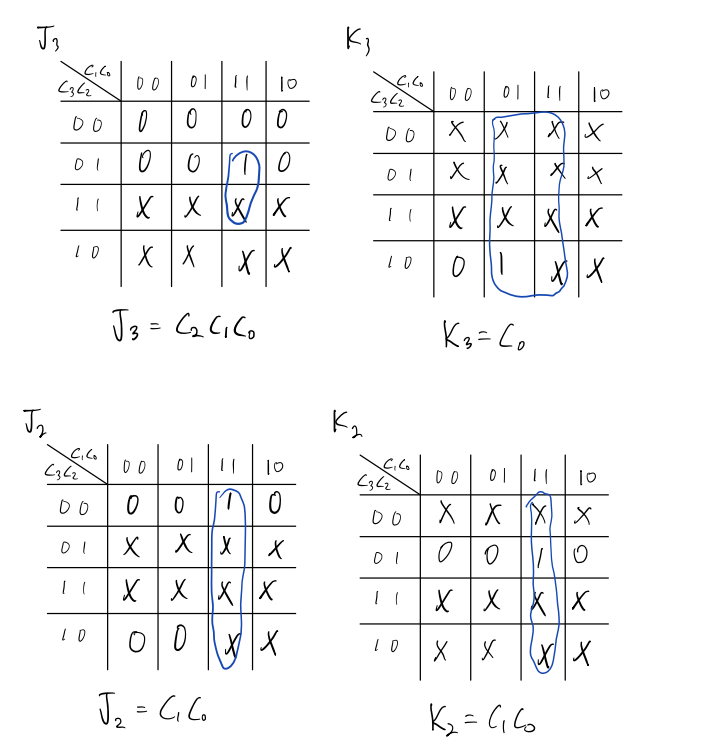 J₃
C₁C₀
C₃C₂ 00 01 11 10
00 0 0 0 0
01 0 0 1 0
11 X X X X
10 X X X X
J₃ = C₂C₁C₀
K₃
C₁C₀
C₃C₂ 00 01 11 10
00 X X X X
01 X X X X
11 X X X X
10 0 1 X X
K₃ = C₀
J₂
C₁C₀
C₃C₂ 00 01 11 10
00 0 0 1 0
01 X X X X
11 X X X X
10 0 0 X X
J₂ = C₁C₀
K₂
C₁C₀
C₃C₂ 00 01 11 10
00 X X X X
01 0 0 1 0
11 X X X X
10 X X X X
K₂ = C₁C₀